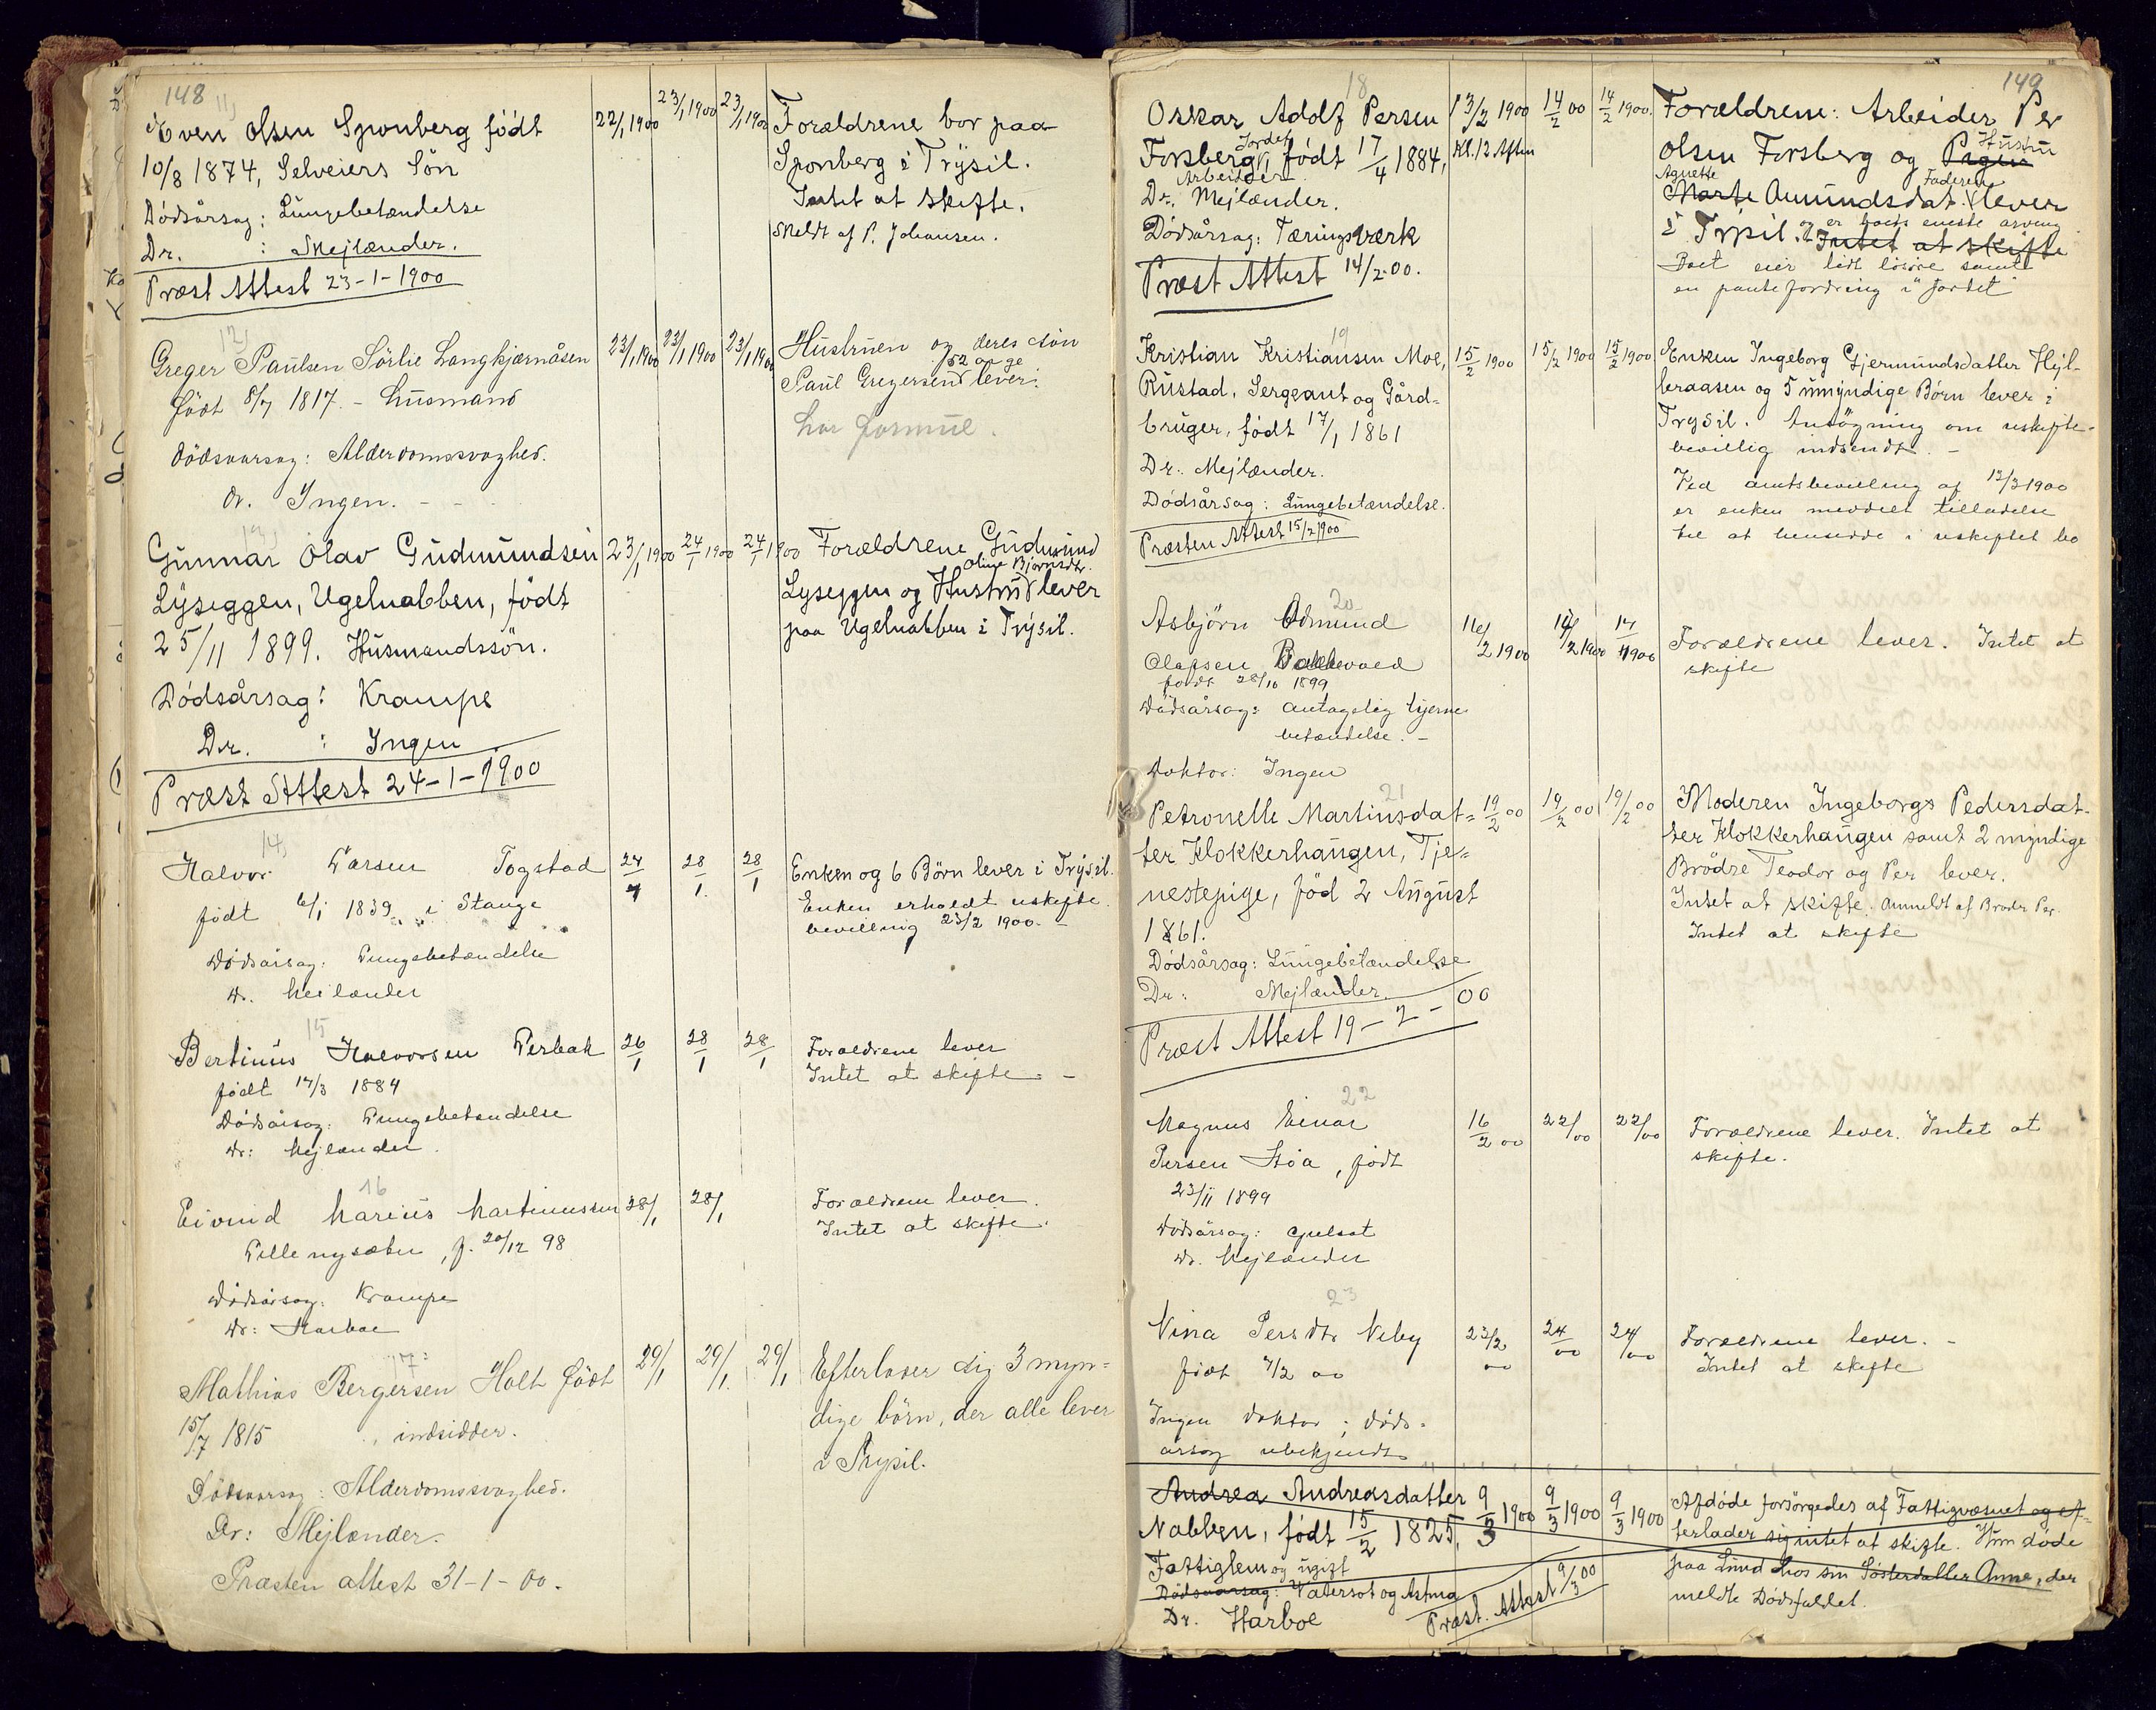 148
11)
Even Olsen Sponberg født
10/8 1874, Selveiers Sön
Dödsårsag: Lungebetændelse
Dr. : Mejlænder.
Præst Attest 23-1-1900
22/1 1900
23/1 1900
23/1 1900
Forældrene bor paa
Sponberg i Trysil.
Intet at skifte.
Meldt af P. Johansen.
12)
Greger Paulsen Sörlie Langkjærnåsen
født 8/7 1817. - Husmand
Dödsaarsag: Alderdomssvaghed.
Dr. Ingen. - - -
23/1 1900
23/1 1900
23/1 1900
Hustruen og deres Søn
52 aar
Paul Gregersen lever.
har formue.
13)
Gunnar Olav Gudmundsen
Lyseggen, Ugelnabben, født
25/11 1899. Husmandssön.
Dödsårsag: Krampe
Dr. : Ingen
Præst Attest 24-1-1900
23/1 1900
24/1 1900
24/1 1900
Forældrene Gudmund
Oline Bjørnsdtr.
Lyseggen og Hustru lever
paa Ugelnabben i Trysil.
14)
Halvor Larsen Togstad
født 6/1 1839 i Stange
Dödsårsag: Lungebetændelse
Dr. Meilænder
24/1
28/1
28/1
Enken og 6 Börn lever i Trysil.
Enken erholdt uskifte
bevilling 23/2 1900. -
15
Bertinius Halvorsen Lerbak
født 14/3 1884
Dødsårsag: Lungebetændelse
Dr: Mejlænder.
26/1
28/1
28/1
Forældrene lever
Intet at skifte. -
16
Eivind Marius Martinussen
Lillenysæter, f. 20/12 98
Dödsårsag: Krampe
Dr: Harboe
28/1
28/1
Forældrene lever.
Intet at skifte.
17
Mathias Bergersen Holt født
15/7 1815 indsidder.
Dödsaarsag: Alderdomssvaghed.
Dr: Mejlænder.
Præsten attest 31-1-00.
29/1
29/1
29/1
Efterlader sig 3 myn=
dige börn, der alle lever
i Trysil.
149
18
Oskar Adolf Persen
Jordet
Forsberg, født 17/4 1884,
Arbeider
Dr. Mejlænder.
Dödsårsag: Tæringsværk
Præst Attest 14/2 00.
13/2 1900
Kl. 12 Aften
14/2 00
14/2 1900.
Forældrene: Arbeider Per
Hustru
Olsen Forsberg og
Agnethe Faderen
Marte Amundsdat. lever
i Trysil. og er hans eneste arving
Intet at skifte
Boet eier lidt løsøre samt
en pantefordring i Jordet
19
Kristian Kristiansen Moe,
Rustad, Sergeant og Gård=
bruger, født 17/1 1861
Dr. Mejlænder.
Dödsårsag: Lungebetændelse.
Præsten Attest 15/2 1900
15/2 1900
15/2 1900
15/2 1900
Enken Ingeborg Gjermundsdatter Hyl-
leraasen og 5 umyndige Børn lever i
Trysil. Ansøgning om uskifte-
bevillig indsendt. -
Ved amtsbevilling af 12/3 1900
er enken meddelt tilladelse
til at hensidde i uskiftet bo
20
Asbjörn Edmund
Olafsen Bakkevold
født 28/10 1899
Dödsårsag: antagelig hjerne
betændelse. -
Doktor: Ingen
16/2 1900
17/2 1900
17/2 1900
Forældrene lever. Intet at
skifte
21
Petronelle Martinsdat=
ter Klokkerhaugen, Tje=
nestepige, fød 2 August
1861.
Dödsårsag: Lungebetændelse
Dr: Mejlænder.
Præst Attest 19-2-00
19/2 00
19/2 00
19/2 00
Moderen Ingeborg Pedersdat-
ter Klokkerhaugen samt 2 myndige
Brödre Teodor og Per lever.
Intet at skifte. Anmeldt af Broder Per.
Intet at skifte
22
Magnus Einar
Persen Støa, født
23/11 1899
Dödsårsag: Gulsot
Dr. Mejlænder
16/2 00
22/00
22/00
Forældrene lever. Intet at
skifte.
23
Nina Persdtr Neby
født 4/2 00
Ingen doktor; døds=
årsag ubekjendt
23/2 00
24/00
24/00
Forældrene lever. -
Intet at skifte
Andrea Andreasdatter
Nabben, født 15/2 1825.
Fattiglem og ugift
Dødsaarsag: Vatersot og Astma
Dr. Harboe
Præst. Attest 9/3 00
9/3 1900
9/3 1900
9/3 1900
Afdöde forsörgedes af Fattigvæsnet og ef-
terlader sig intet at skifte. Hun døde
paa Lund hos sin Søsterdatter Anne, der
meldte Dödsfaldet.